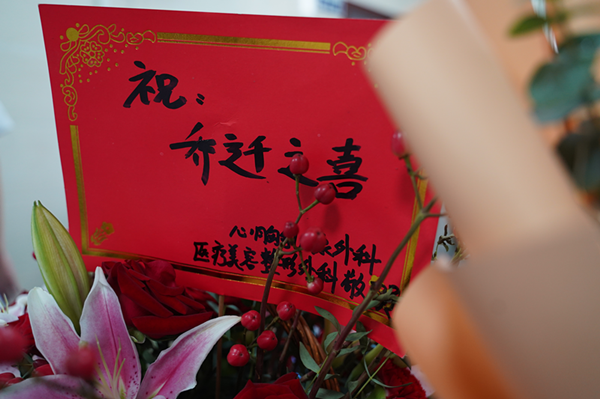 祝：
乔迁之喜
心胸 外科
医疗美容整形外科 敬